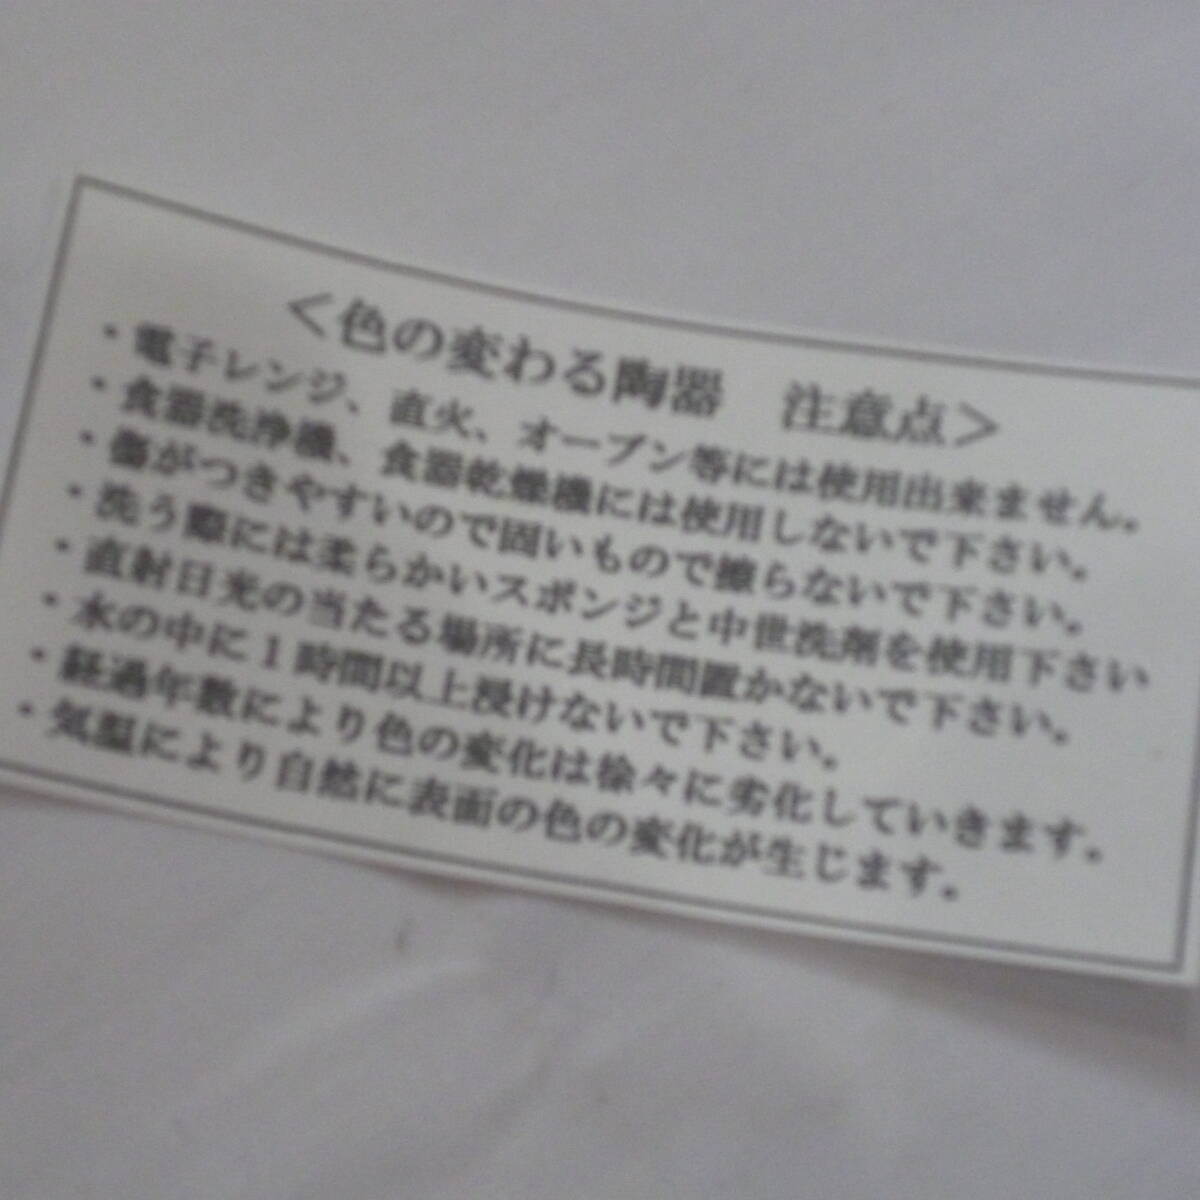 ＜色の変わる陶器　注意点＞
・電子レンジ、直火、オーブン等には使用出来ません。
・食器洗浄機、食器乾燥機には使用しないで下さい。
・傷がつきやすいので固いもので擦らないで下さい。
・洗う際には柔らかいスポンジと中世洗剤を使用下さい
・直射日光の当たる場所に長時間置かないで下さい。
・水の中に１時間以上浸けないで下さい。
・経過年数により色の変化は徐々に劣化していきます。
・気温により自然に表面の色の変化が生じます。